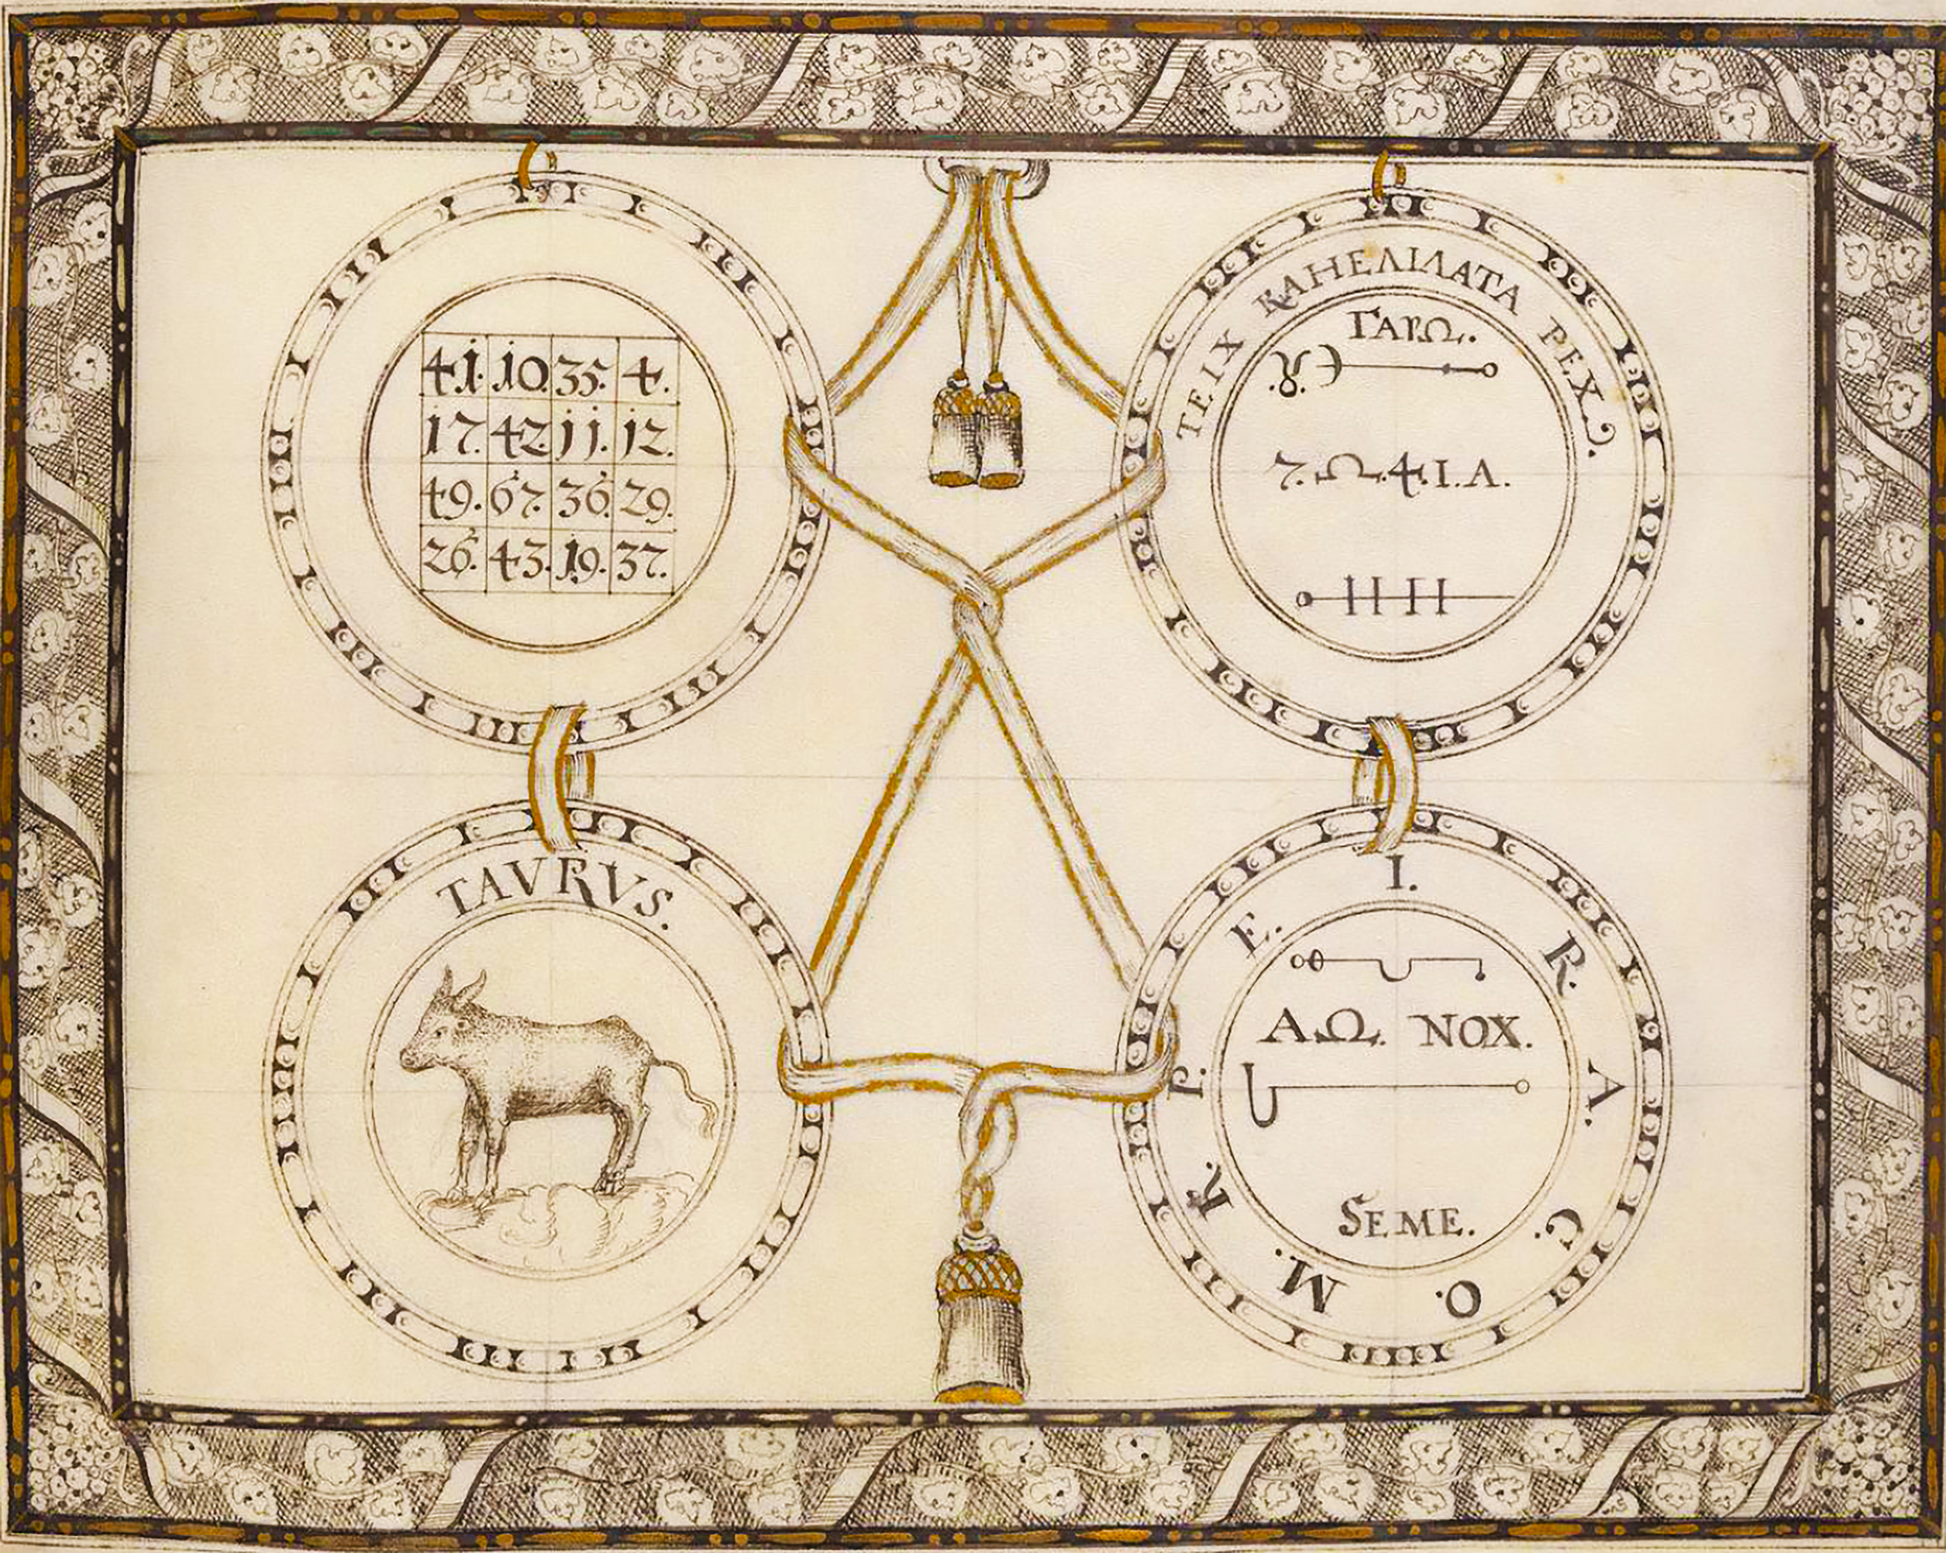 41. 10. 35. 4.
17. 42. 11. 12.
49. 67. 36. 29.
26. 43. 19. 37.
ΤΕΙΧ ΚΑΗΕΛΙΛΑΤΑ ΡΕΧ
ΓΑΡΩ.
.♉.
7. Ω. 4. I. Λ.
TAVRVS.
I. R. A. C. O. M. K. P. E.
ΑΩ. NOX.
SEME.